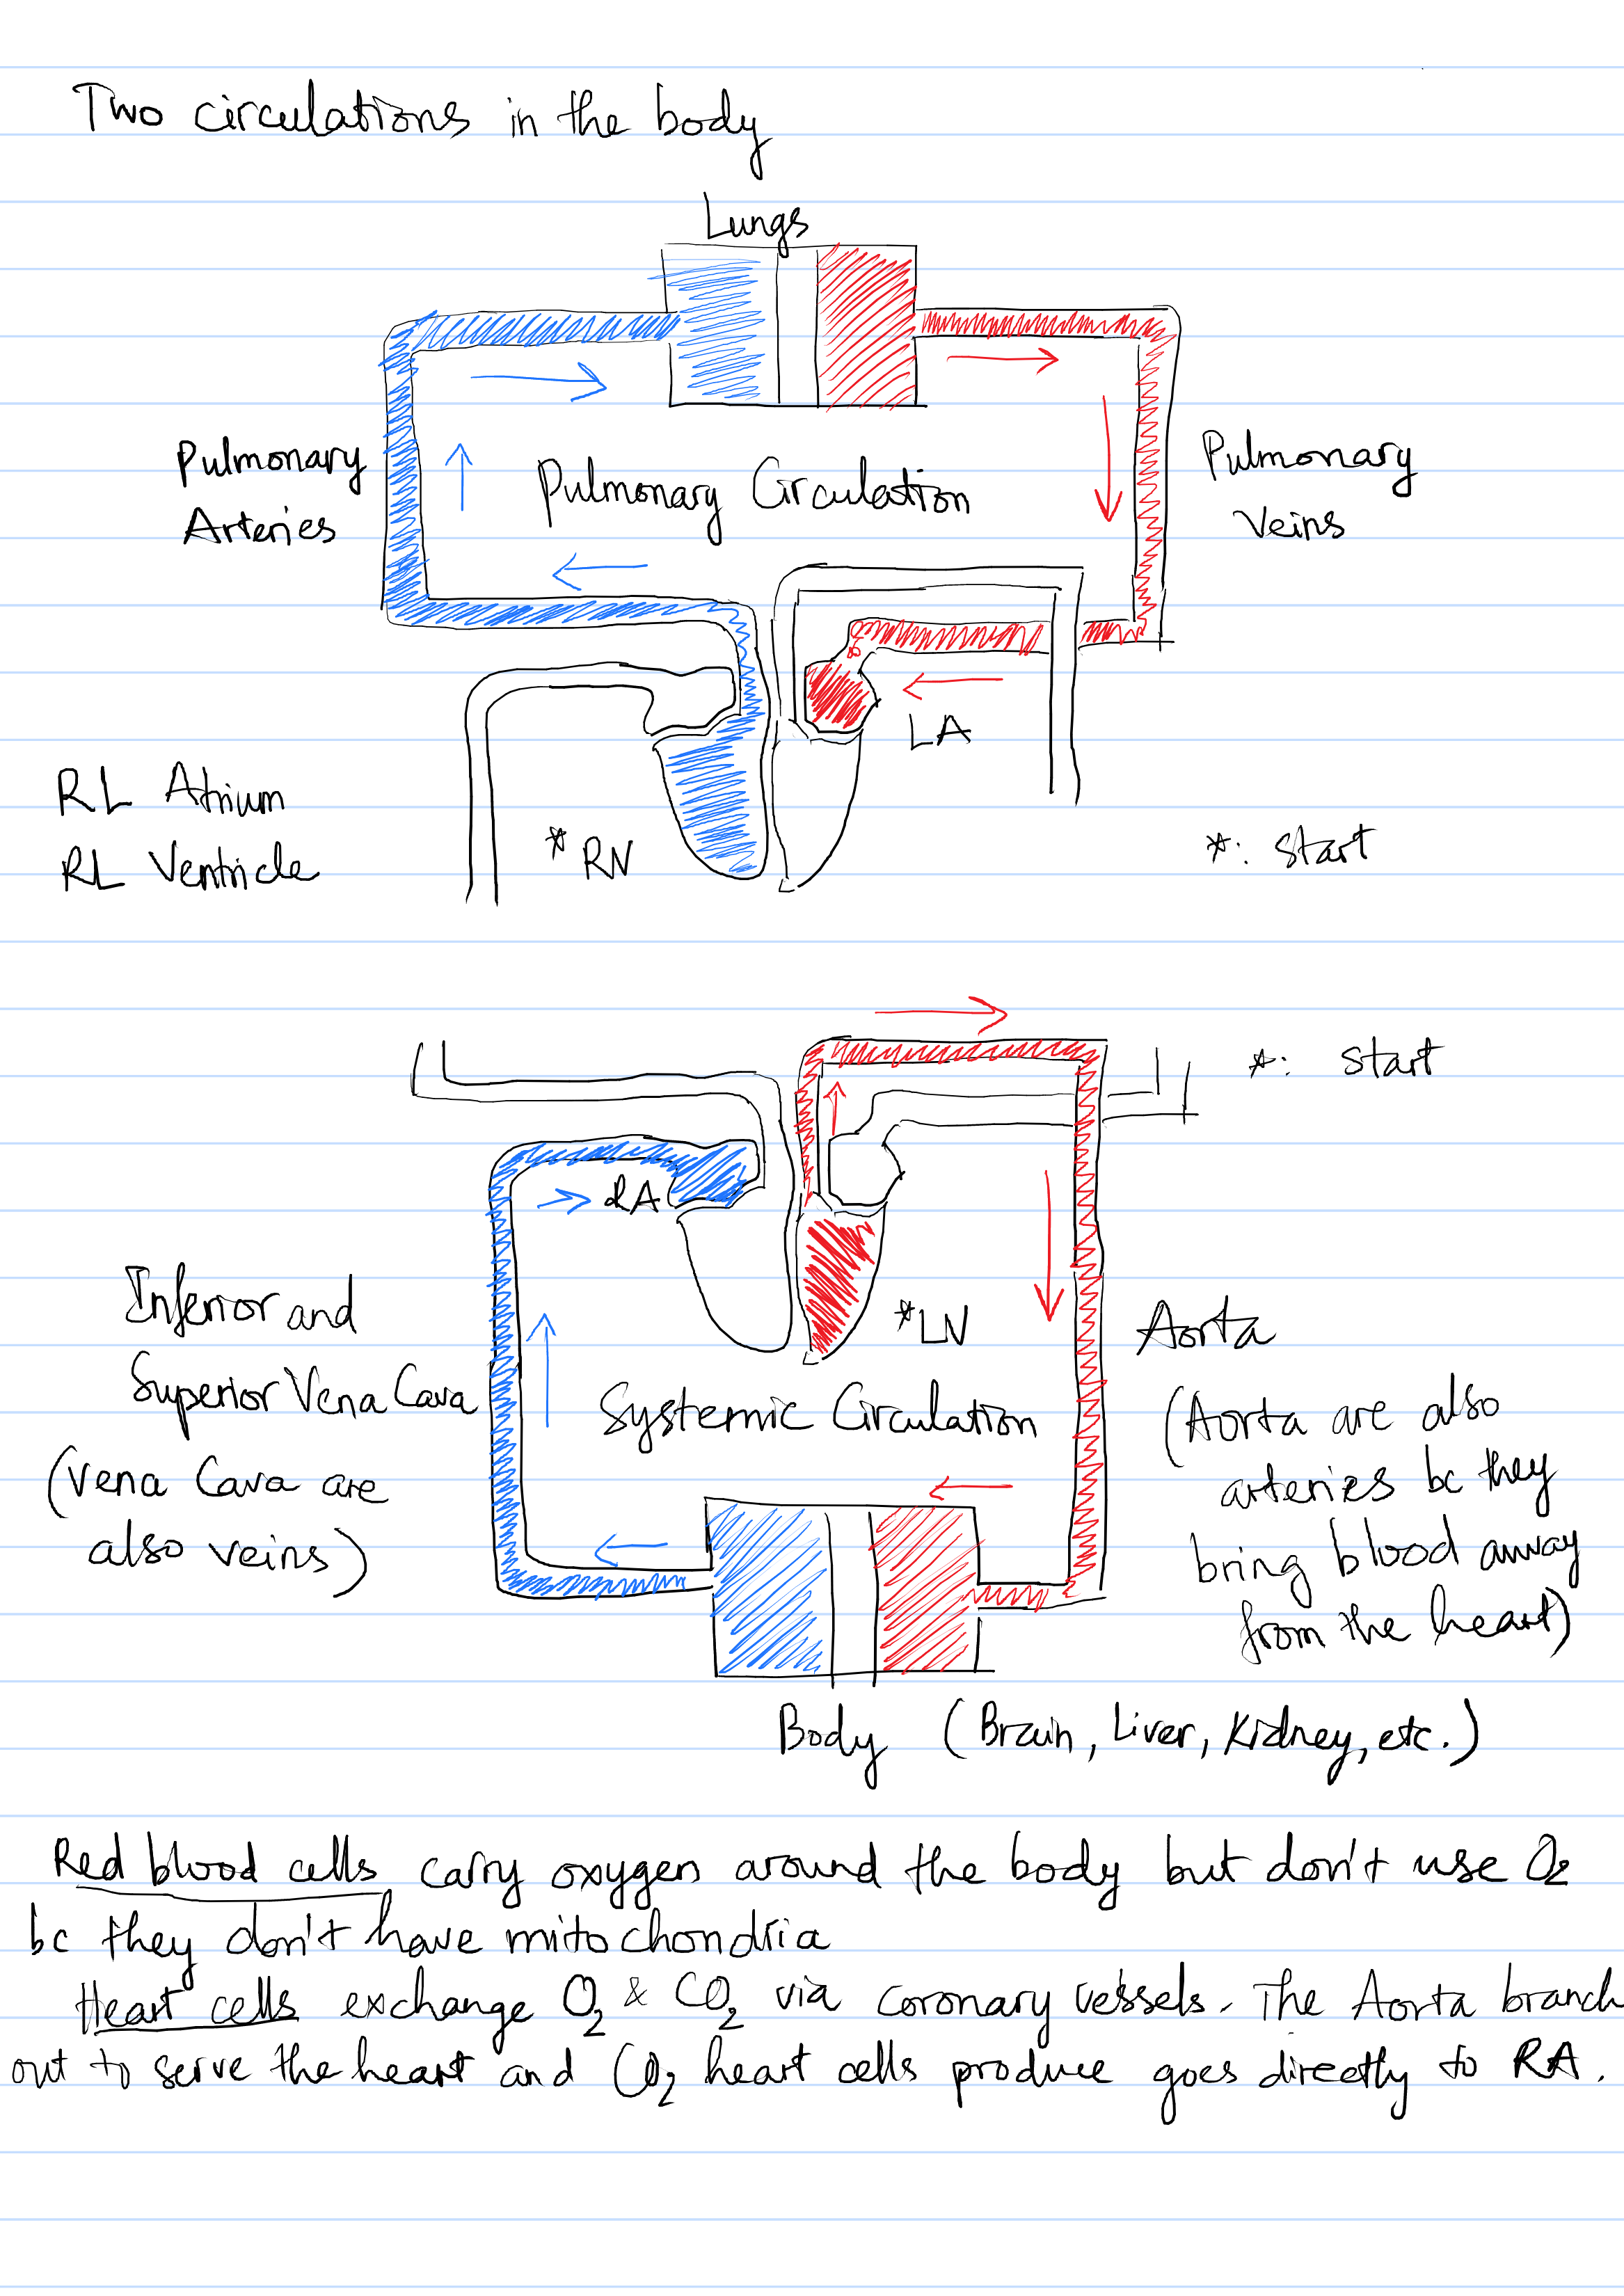 Two circulations in the body
Lungs
Pulmonary
Arteries
Pulmonary Circulation
Pulmonary
Veins
LA
RL Atrium
RL Ventricle
* RV
*: start
*: start
RA
*LV
Inferior and
Superior Vena Cava
(Vena Cava are
also veins)
Systemic Circulation
Aorta
(Aorta are also
arteries bc they
bring blood away
from the heart)
Body (Brain, Liver, Kidney, etc.)
Red blood cells carry oxygen around the body but don't use O2
bc they don't have mitochondria
Heart cells exchange O2 & CO2 via coronary vessels. The Aorta branch
out to serve the heart and CO2 heart cells produce goes directly to RA.